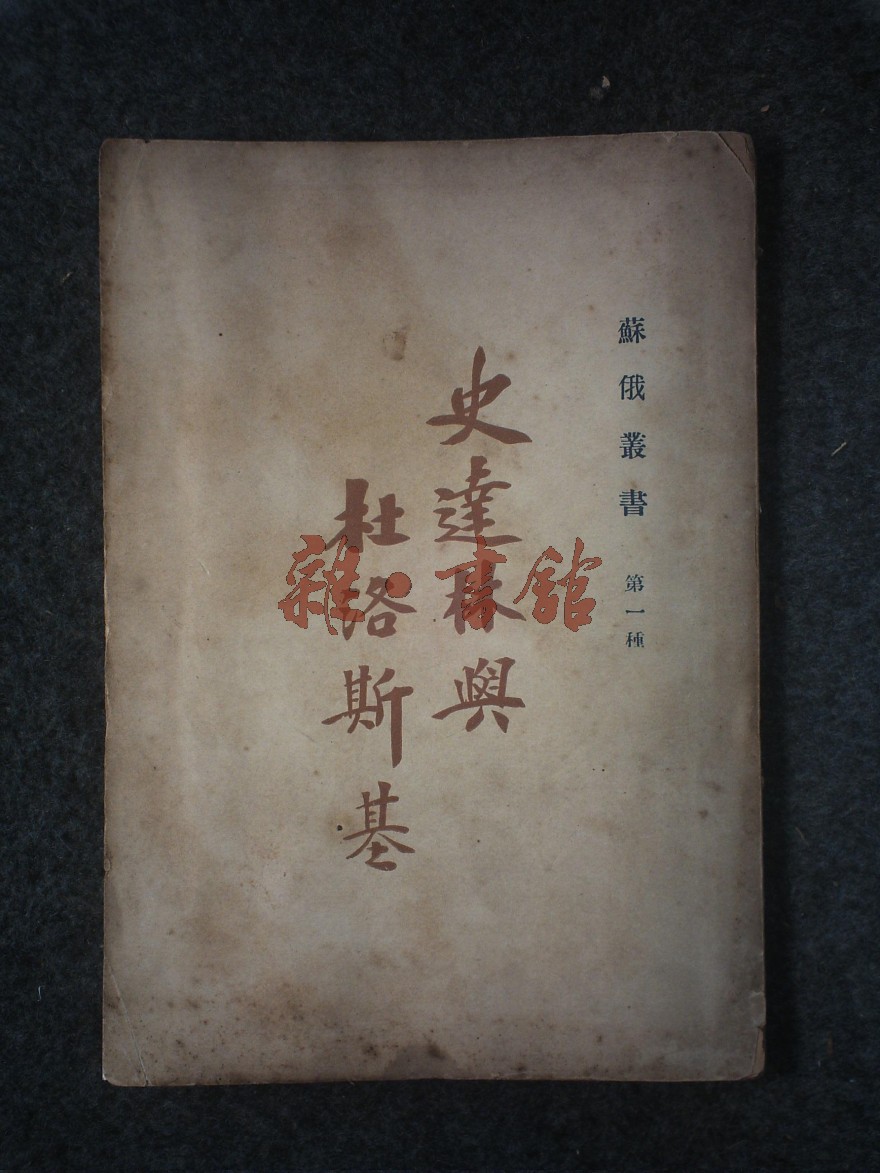 蘇俄叢書 第一種
史達林與
杜洛斯基
雜·書館